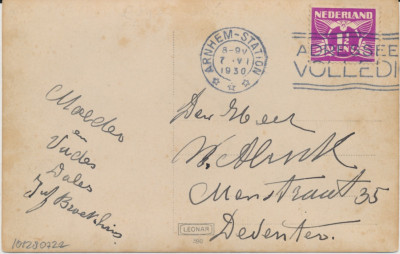 NEDERLAND
1½
CENT
ARNHEM-STATION
8-9V
7·VI
1930
VOLLEDI
Moeder
en
Vader
Dales
Juf Broekhuis.
Den Heer
W.
Menstraat 35
Deventer.
LEONAR
101280722